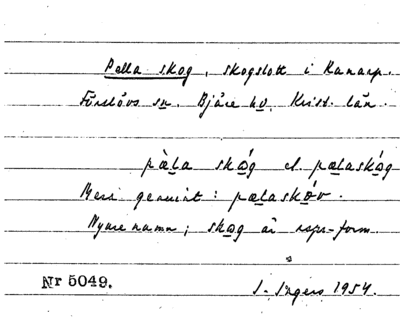 Pella skog, skogslott i Kanarp.
Förslövs sn. Bjäre hd. Krist. län.
pæ̀la skóg el. pælaskóg
Mera genuint: pælaskóv.
Nyare namn; skog är rspr-form.
Nr 5049.
I. Ingers 1954.